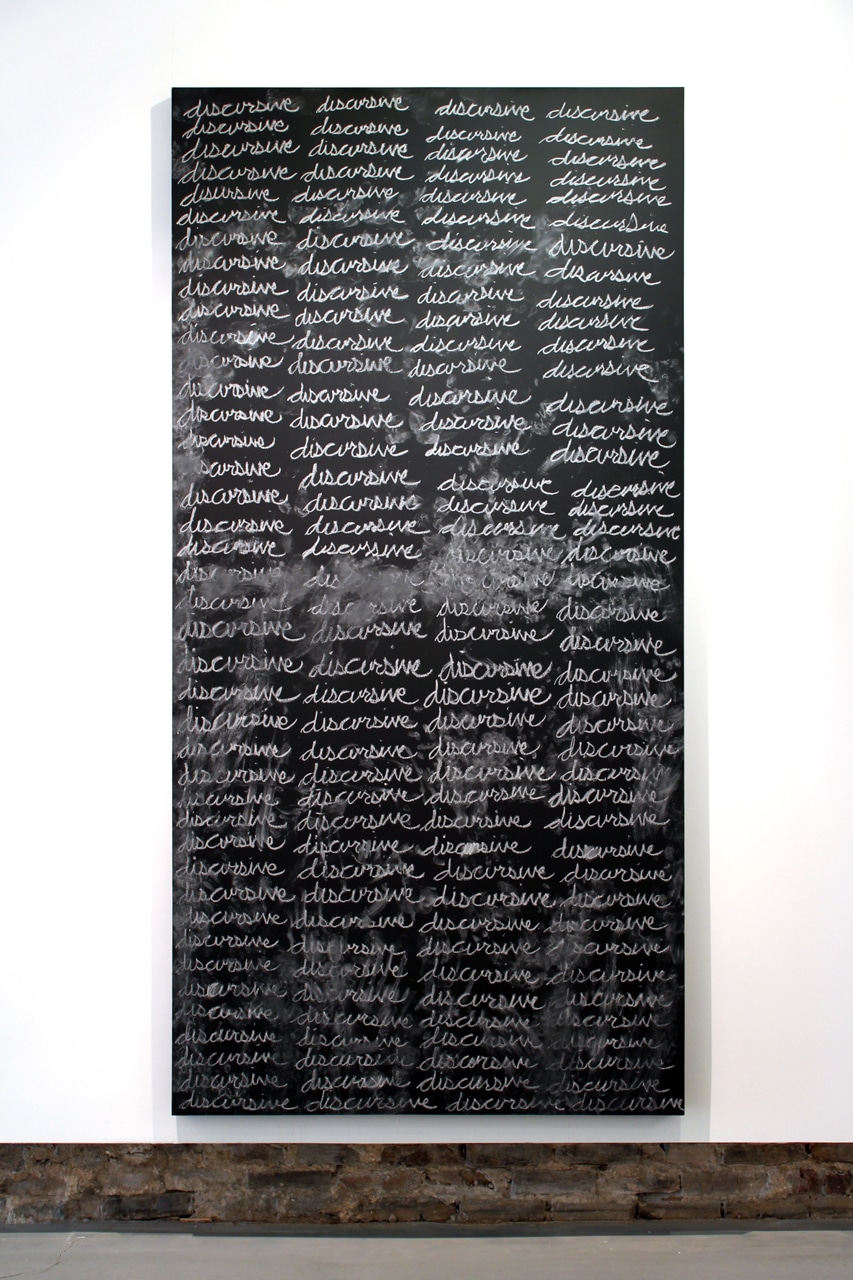 discursive discursive discursive discursive
discursive discursive discursive discursive
discursive discursive discursive discursive
discursive discursive discursive discursive
discursive discursive discursive discursive
discursive discursive discursive discursive
discursive discursive discursive discursive
discursive discursive discursive discursive
discursive discursive discursive discursive
discursive discursive discursive discursive
discursive discursive discursive discursive
discursive discursive discursive discursive
discursive discursive discursive discursive
discursive discursive discursive discursive
discursive discursive discursive discursive
cursive discursive discursive discursive
discursive discursive discursive discursive
discursive discursive discursive discursive
discursive discursive discursive discursive
discursive
discursive discursive discursive discursive
discursive discursive discursive discursive
discursive discursive discursive discursive
discursive discursive discursive discursive
discursive discursive discursive discursive
discursive discursive discursive discursive
discursive discursive discursive discursive
discursive discursive discursive discursive
discursive discursive discursive discursive
discursive discursive discursive discursive
discursive discursive discursive discursive
discursive discursive discursive discursive
discursive discursive discursive discursive
discursive discursive discursive discursive
discursive discursive discursive discursive
discursive discursive discursive discursive
discursive discursive discursive discursive
discursive discursive discursive discursive
discursive discursive discursive discursive
discursive discursive discursive discursive
discursive discursive discursive discursive